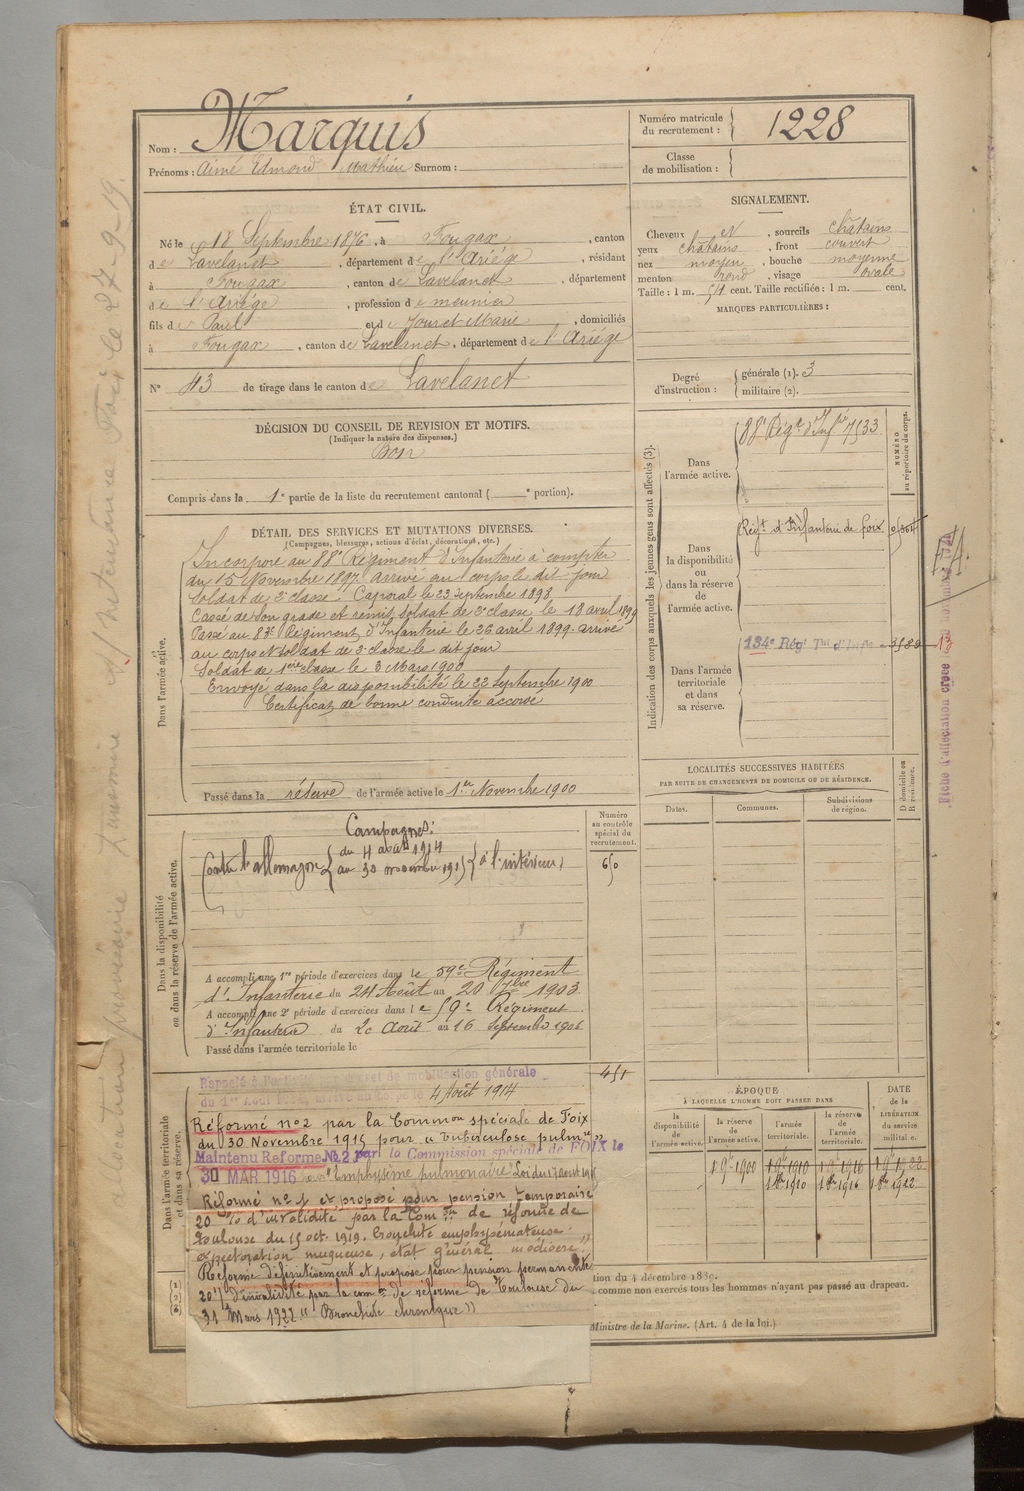 Nom : Marquis
Prénoms : Aimé Edmond Mathieu Surnom :
Numéro matricule du recrutement : 1228
Classe de mobilisation :
ÉTAT CIVIL.
Né le 18 Septembre 1876, à Fougax, canton
de Lavelanet, département de l'Ariége, résidant
à Fougax, canton de Lavelanet, département
de l'Ariége, profession de meunier
fils de Paul et de Jouret Marie, domiciliés
à Fougax, canton de Lavelanet, département de l'Ariége
N° 43 de tirage dans le canton de Lavelanet
SIGNALEMENT.
Cheveux N, sourcils châtains
yeux châtains, front couvert
nez moyen, bouche moyenne
menton rond, visage ovale
Taille : 1 m. 54 cent. Taille rectifiée : 1 m. cent.
MARQUES PARTICULIÈRES :
Degré d'instruction : générale (1). 3
militaire (2).
DÉCISION DU CONSEIL DE REVISION ET MOTIFS.
(Indiquer la nature des dispenses.)
Bon
Compris dans la 1e partie de la liste du recrutement cantonal ( e portion).
DÉTAIL DES SERVICES ET MUTATIONS DIVERSES.
(Campagnes, blessures, actions d'éclat, décorations, etc.)
Dans l'armée active.
Incorporé au 88e Régiment d'Infanterie à compter
du 15 Novembre 1897 arrivé au corps le dit jour
Soldat de 2e classe. Caporal le 23 Septembre 1898
Cassé de son grade et remis soldat de 2e classe le 18 avril 1899
Passé au 83e Régiment d'Infanterie le 26 avril 1899. arrivé
au corps et soldat de 2e classe le dit jour
Soldat de 1ère classe le 8 Mars 1900
Envoyé dans la disponibilité le 22 Septembre 1900
Certificat de bonne conduite accordé
Passé dans la réserve de l'armée active le 1er Novembre 1900
Indication des corps auxquels les jeunes gens sont affectés (3).
NUMÉRO au répertoire du corps.
Dans l'armée active.
88e Régt d'Infie 7533
Dans la disponibilité ou dans la réserve de l'armée active.
Régt d'Infanterie de Foix
Dans l'armée territoriale et dans sa réserve.
134e Régt Tal d'Infie 3580
13
LOCALITÉS SUCCESSIVES HABITÉES
PAR SUITE DE CHANGEMENTS DE DOMICILE OU DE RÉSIDENCE.
Dates. Communes. Subdivisions de région. D domicile ou R résidence.
Dans la disponibilité ou dans la réserve de l'armée active.
Numéro au contrôle spécial du recrutement.
650
Campagnes :
Contre l'allemagne du 4 août 1914
au 30 novembre 1915 à l'intérieur
A accompli une 1re période d'exercices dans le 59e Régiment
d'Infanterie du 24 Août au 20 7bre 1903
A accompli une 2e période d'exercices dans le 59e Régiment
d'Infanterie du 20 Août au 16 Septembre 1906
Passé dans l'armée territoriale le
451
Dans l'armée territoriale et dans sa réserve.
Rappelé à l'activité décret de mobilisation générale
du 1er Août 1914, arrivé au corps le 4 Août 1914
Réformé no 2 par la Common spéciale de Foix
du 30 Novembre 1915 pour "Tuberculose pulmre"
Maintenu Reformé No 2 par la Commission spéciale de FOIX le
30 MAR 1916 pour "Emphysème pulmonaire" Loi du 17 Août 1915
Réformé no 1 et proposé pour pension temporaire
20 % d'invalidité par la Comon de réforme de
Toulouse du 15 oct. 1919. Bronchite emphysémateuse.
expectoration muqueuse, état général médiocre"
Réformé définitivement et proposé pour pension permanente
20% d'invalidité par la comon de réforme de Toulouse du
31 Mars 1922 "Bronchite chronique"
ÉPOQUE
À LAQUELLE L'HOMME DOIT PASSER DANS
la disponibilité de l'armée active. la réserve de l'armée active. l'armée territoriale. la réserve de l'armée territoriale.
DATE de la LIBÉRATION du service militaire.
1 9bre 1900 1 9bre 1910 1 9bre 1916 1 9bre 1922
1 8bre 1910 1 8bre 1916 1 8bre 1922
comme non exercés tous les hommes n'ayant pas passé au drapeau.
Ministre de la Marine. (Art. 4 de la loi.)
Fiche d'affectation créée